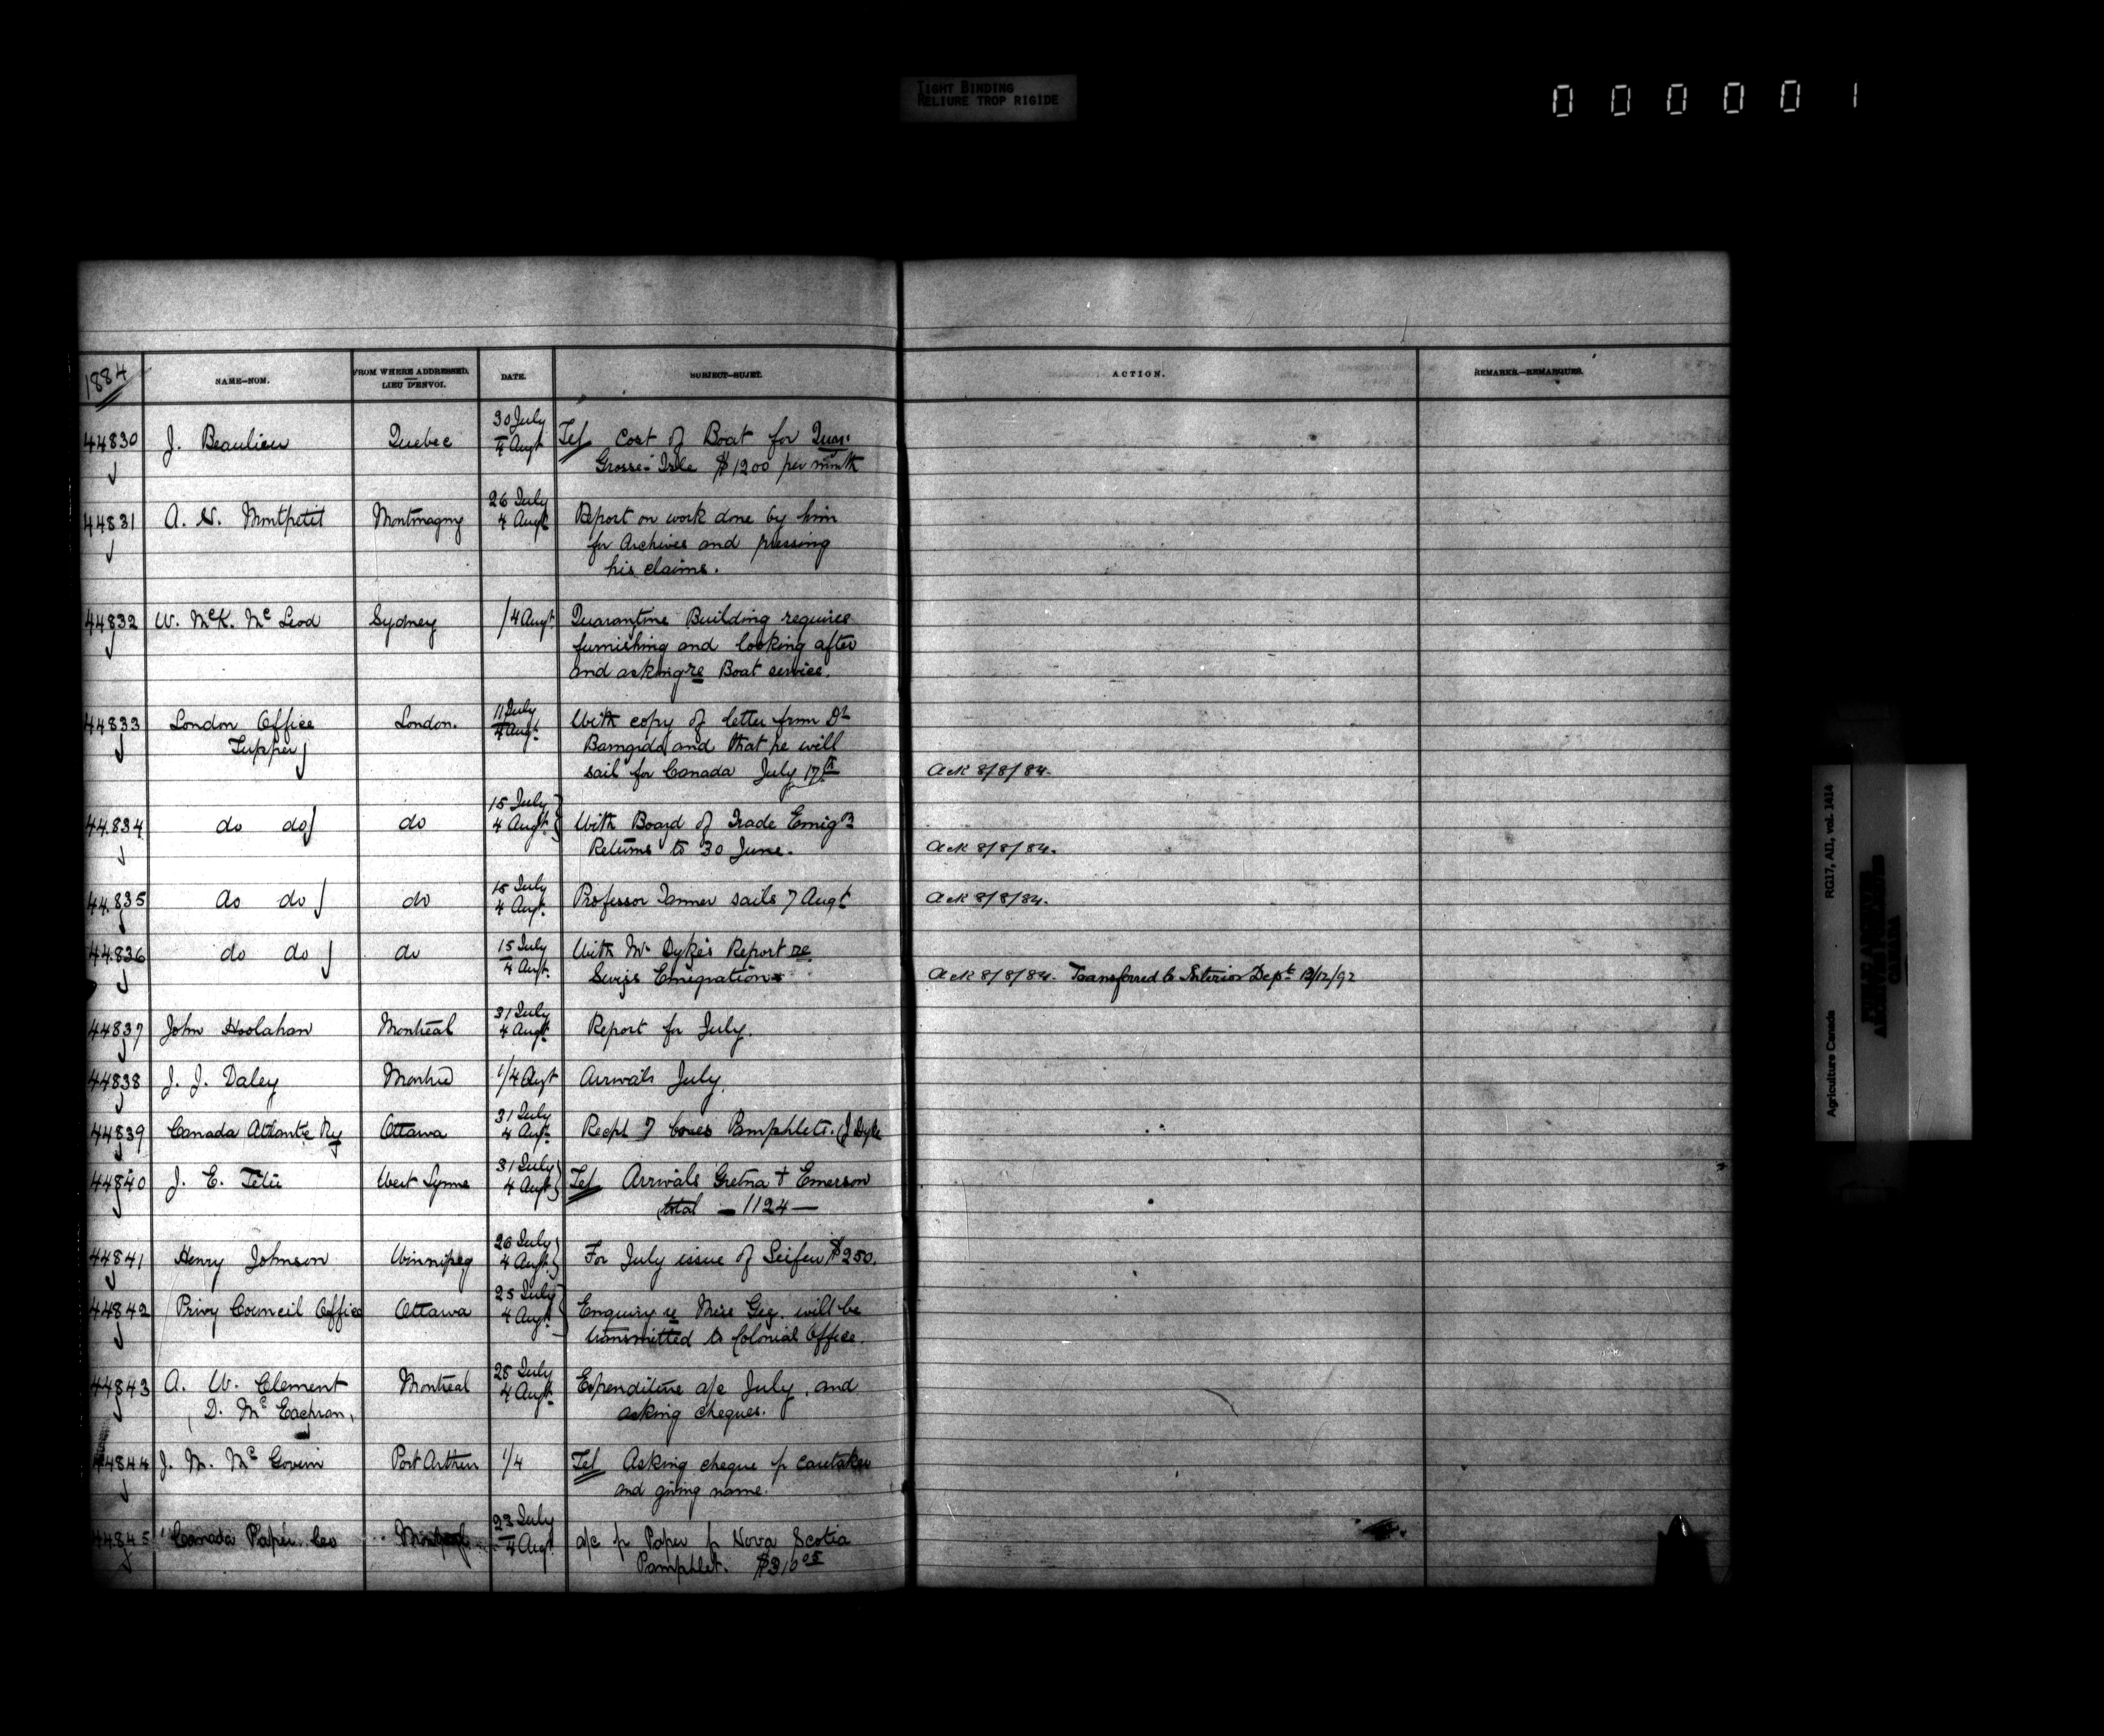 TIGHT BINDING
RELIURE TROP RIGIDE
000001
1884
NAME-NOM.
FROM WHERE ADDRESSED. LIEU D'ENVOI.
DATE.
SUBJECT-SUJET.
ACTION.
REMARKS.-REMARQUES.
44830 J. Beaulieu Quebec 30 July 4 Augt Tel Cost of Boat for Quar.
Grosse-Isle $1200 per month
44831 A. N. Montpetit Montmagny 26 July 4 Augt Report on work done by him
for Archives and pressing
his claims.
44832 W. McK. McLeod Sydney 1/4 Augt Quarantine Building requires
furnishing and looking after
and asking re Boat service.
44833 London Office London. 11 July 4 Augt. With copy of letter from Dr
Tupper and that he will
sail for Canada July 17th Ack 8/8/84.
44834 do do do 15 July 4 Augt. With Board of Trade Emign
Returns to 30 June. Ack 8/8/84.
44835 do do do 15 July 4 Augt. Professor Tanner sails 7 Augt Ack 8/8/84.
44836 do do do 15 July 4 Augt. With Mr Dyke's Report re
Swiss Emigration Ack 8/8/84. Transferred to Interior Dept. 12/12/92
44837 John Hoolahan Montreal 31 July 4 Augt. Report for July.
44838 J. J. Daley Montreal 1/4 Augt Arrivals July.
44839 Canada Atlantic Ry Ottawa 31 July 4 Augt. Recpt 7 boxes Pamphlets. (J Dyke
44840 J. E. Tétu West Lynne 31 July 4 Augt Tel Arrivals Gretna + Emerson
total - 1124 -
44841 Henry Johnson Winnipeg 26 July 4 Augt. For July issue of $250.
44842 Privy Council Office Ottawa 25 July 4 Augt. Enquiry re Miss will be
transmitted to Colonial Office.
44843 A. W. Clement Montreal 28 July 4 Augt. Expenditure a/c July, and
D. McEachran, asking cheques.
44844 J. M. McGovern Port Arthur 1/4 Tel Asking cheque p caretaker
and giving name.
44845 Canada Paper Coo Montreal 23 July 4 Augt. a/c p Paper p Nova Scotia
Pamphlet. $310 05
Agriculture Canada RG17, AII, vol. 1414
PUBLIC ARCHIVES
ARCHIVES PUBLIQUES
CANADA